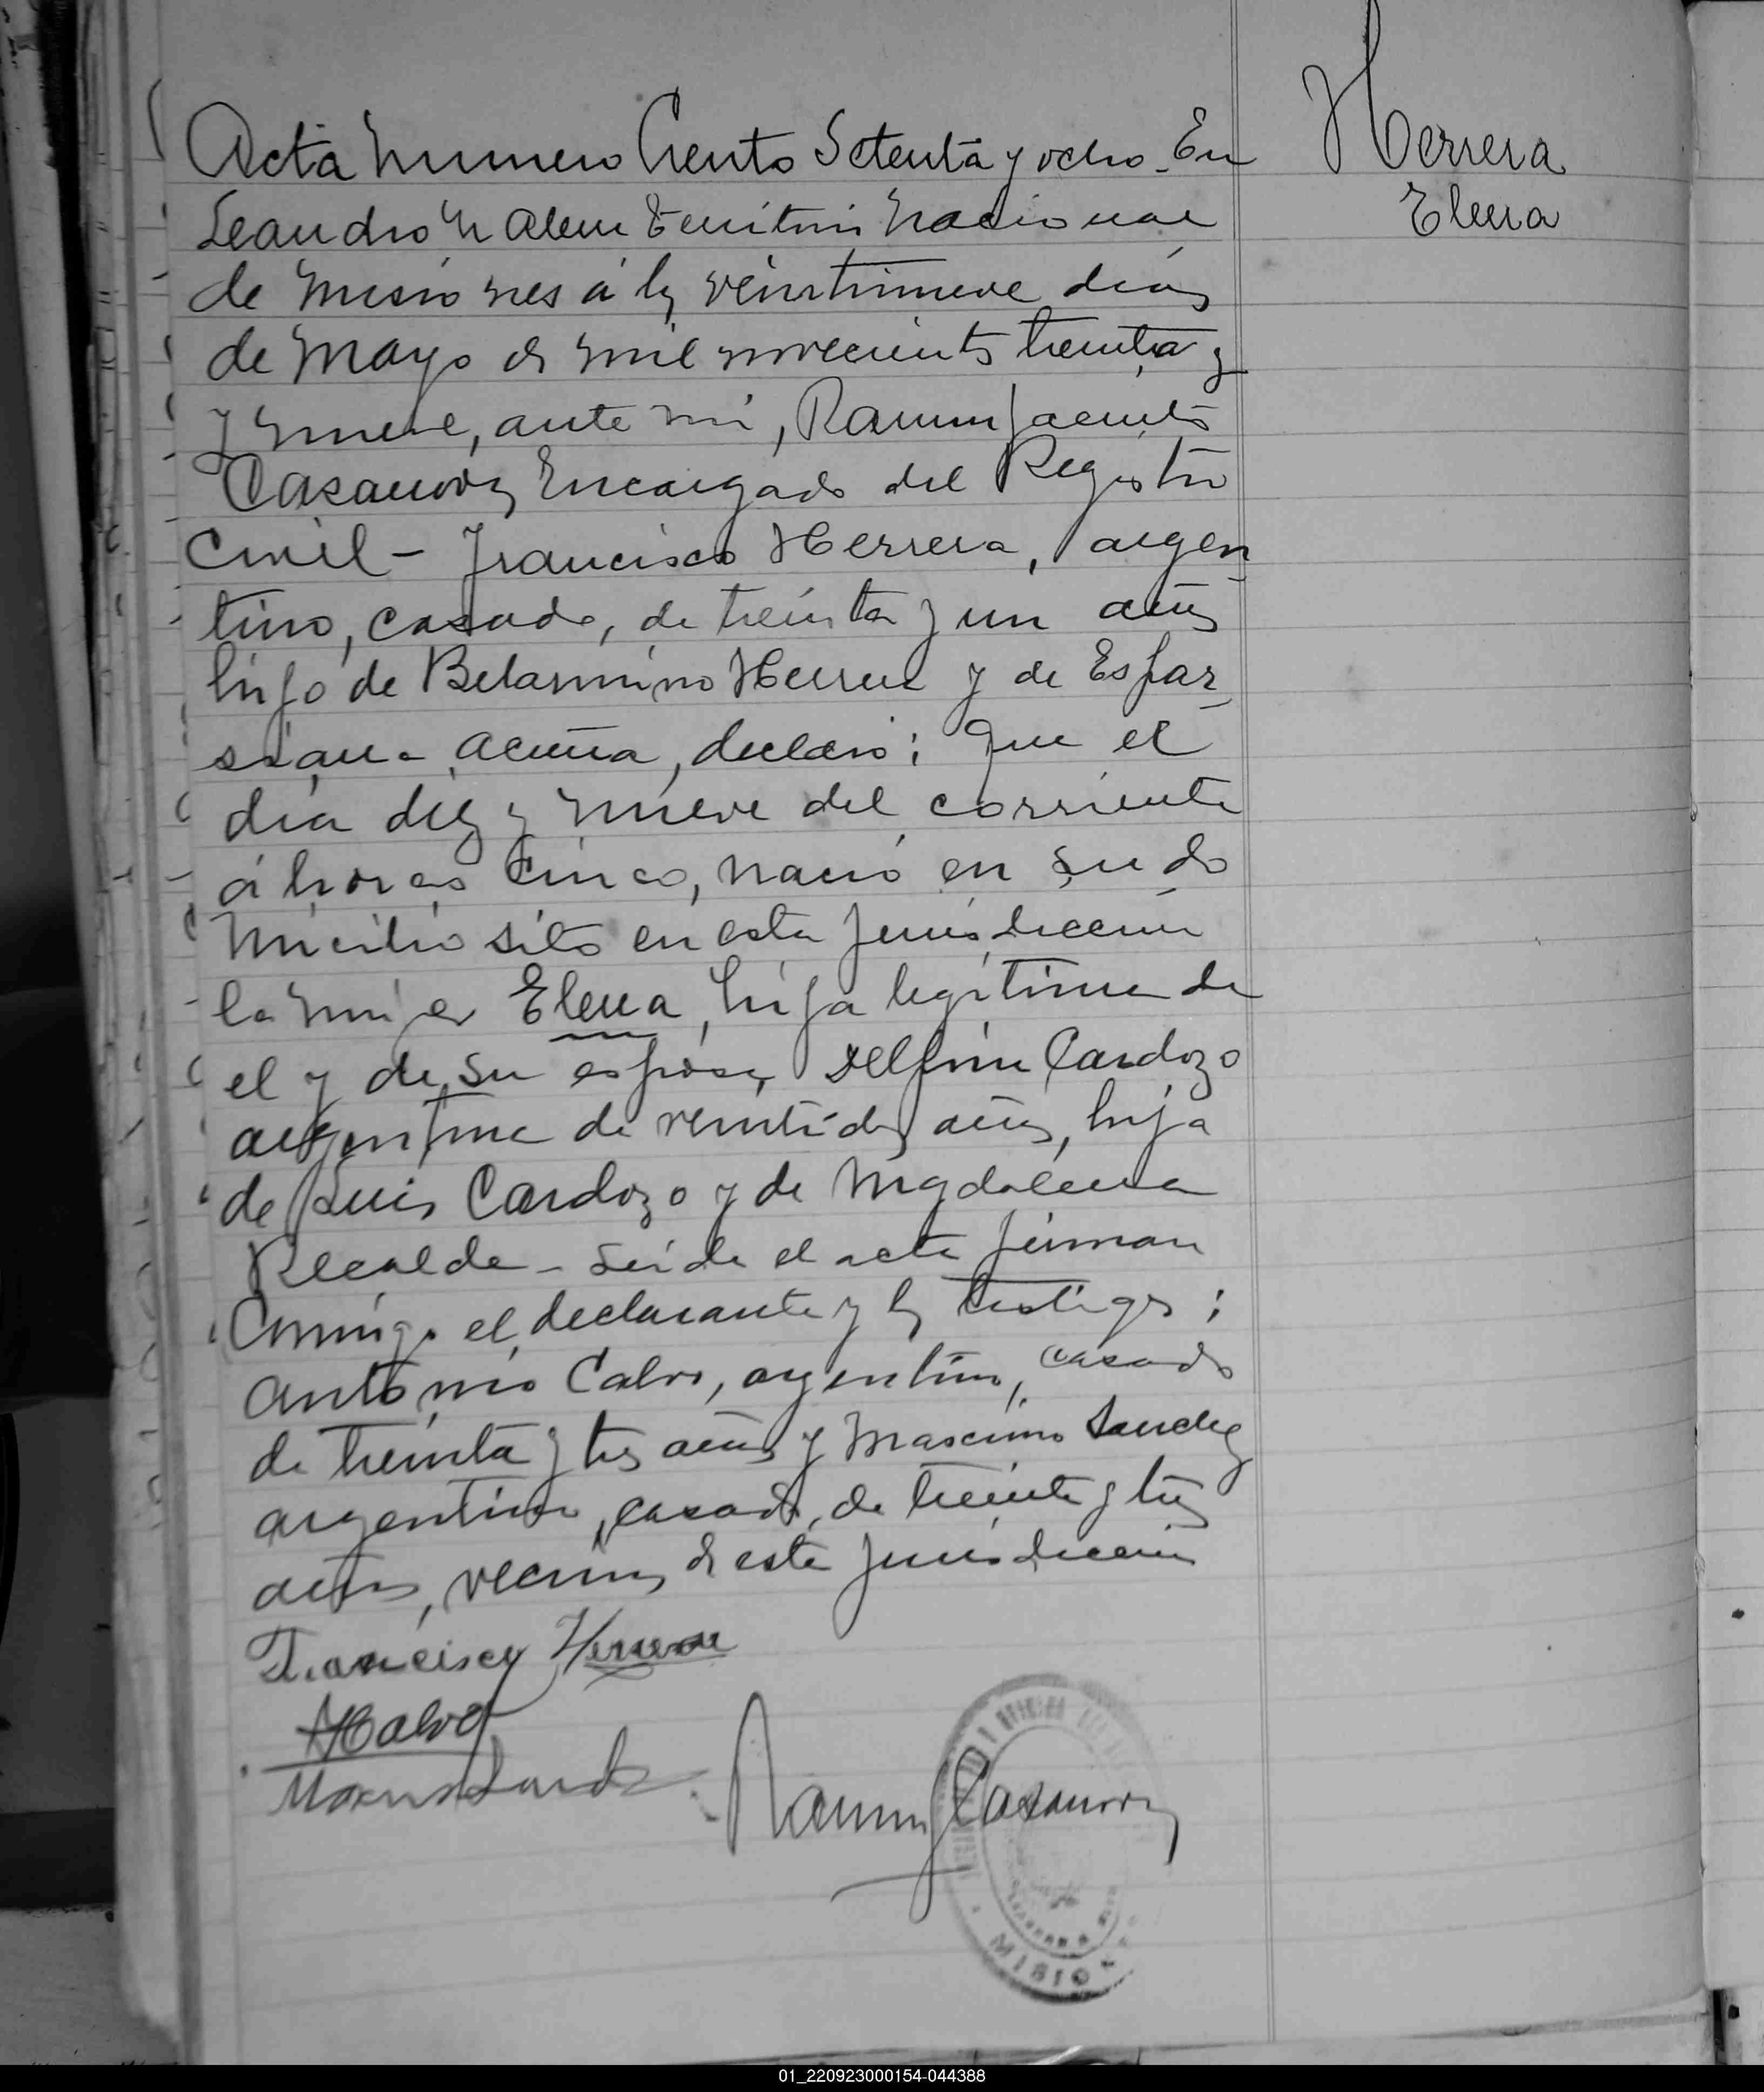 Acta Numero Ciento Setenta y ocho. En
Herrera
Elena
Leandro N Alem Territorio Nacional
de Misiones á los veintinueve días
de Mayo de mil novecientos treinta y
y nueve, ante mi, Ramon Jacinto
Casanova, Encargado del Registro
Civil - Francisco Herrera, argen
tino, casado, de treinta y un años
hijo de Belarmino Herrera y de Espar
siana Acuña, declaró: Que el
día diez y nueve del corriente
á horas cinco, nació en su do
micilio sito en esta jurisdiccion
la mujer Elena, hija legítima de
el y de su esposa Delfina Cardozo
argentina de veintidos años, hija
de Luis Cardozo y de Magdalena
Recalde - Leída el acta firman
conmigo el declarante y los testigos:
Antonio Calvo, argentino, casado
de treinta y tres años y Maximo Sanchez
argentino, casado, de treinta y tres
años, vecinos de esta jurisdiccion
Francisco Herrera
ACalvo
Ramon J Casanova
MISIONES
01_220923000154-044388